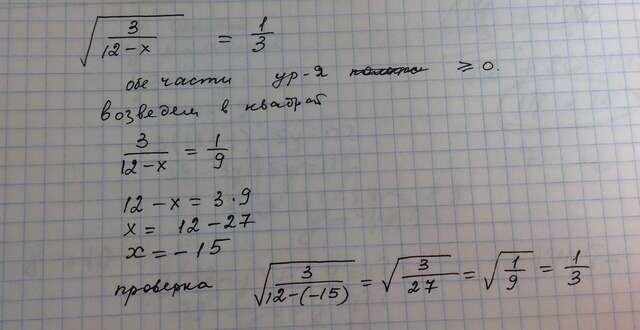 √(3/(12-x)) = 1/3
обе части ур-я ≥ 0.
возведем в квадрат
3/(12-x) = 1/9
12-x = 3·9
x = 12-27
x = -15
проверка √(3/(12-(-15))) = √(3/27) = √(1/9) = 1/3